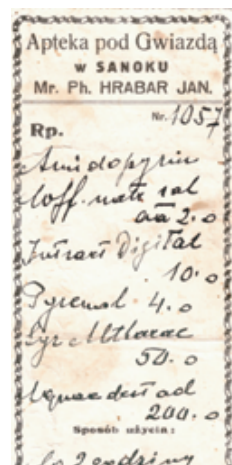 Apteka pod Gwiazdą
w SANOKU
Mr. Ph. HRABAR JAN.
Nr. 1057
Rp.
Amidopyrin
Coff. natr. sal
aa 2.0
Infusi Digital
10.0
Pyramid 4.0
50.0
Aquae dest ad
200.0
Sposób użycia:
co 2 godziny